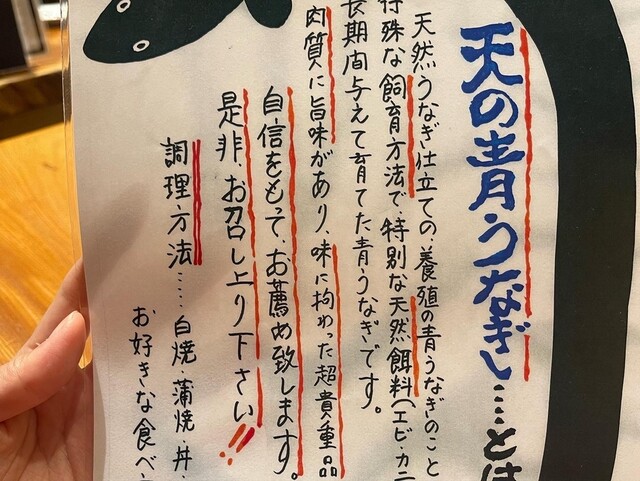 天の青うなぎ……とは
天然うなぎ仕立ての、養殖の青うなぎのこと
特殊な飼育方法で、特別な天然餌料(エビ・カニ
長期間与えて育てた青うなぎです。
肉質に旨味があり、味に拘わった超貴重品
自信をもって、お薦め致します。
是非お召し上り下さい!!
調理方法……白焼・蒲焼・丼・
お好きな食べ